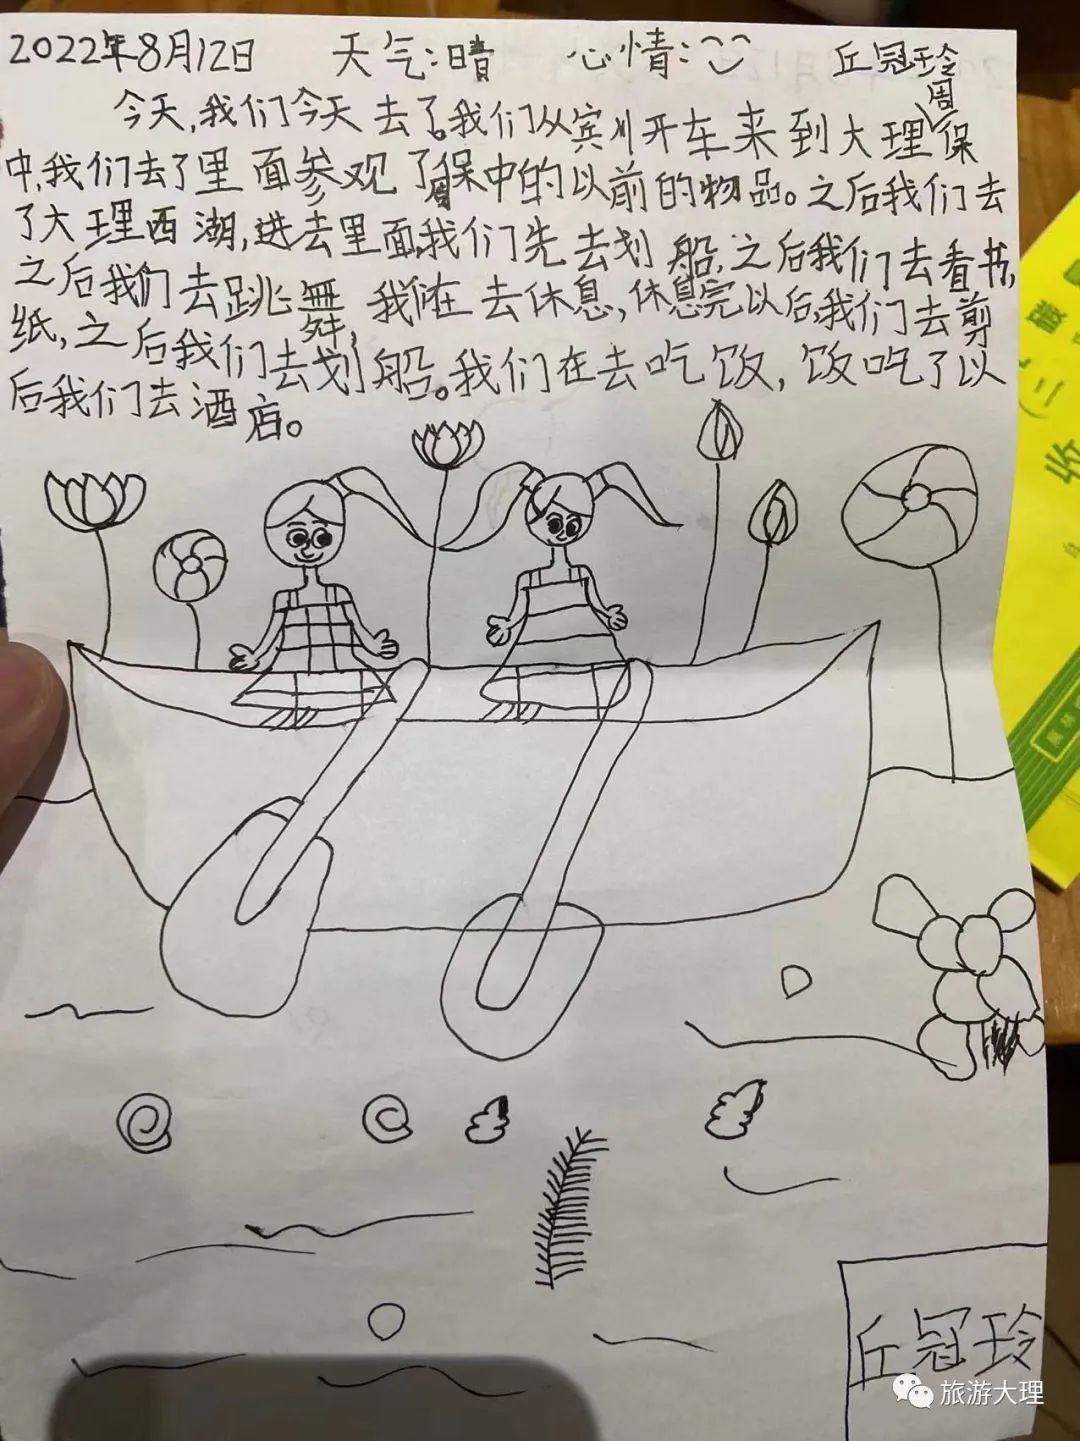 2022年8月12日 天气:晴 心情: 丘冠玲
今天,我们今天去了。我们从宾川开车来到大理周保
中,我们去了里面参观了周保中的以前的物品。之后我们去
了大理西湖,进去里面,我们先去划船,之后我们去看书,
之后我们去跳舞,我们在去休息,休息完以后,我们去剪
纸,之后我们去划船。我们在去吃饭,饭吃了以
后我们去酒店。
丘冠玲
旅游大理